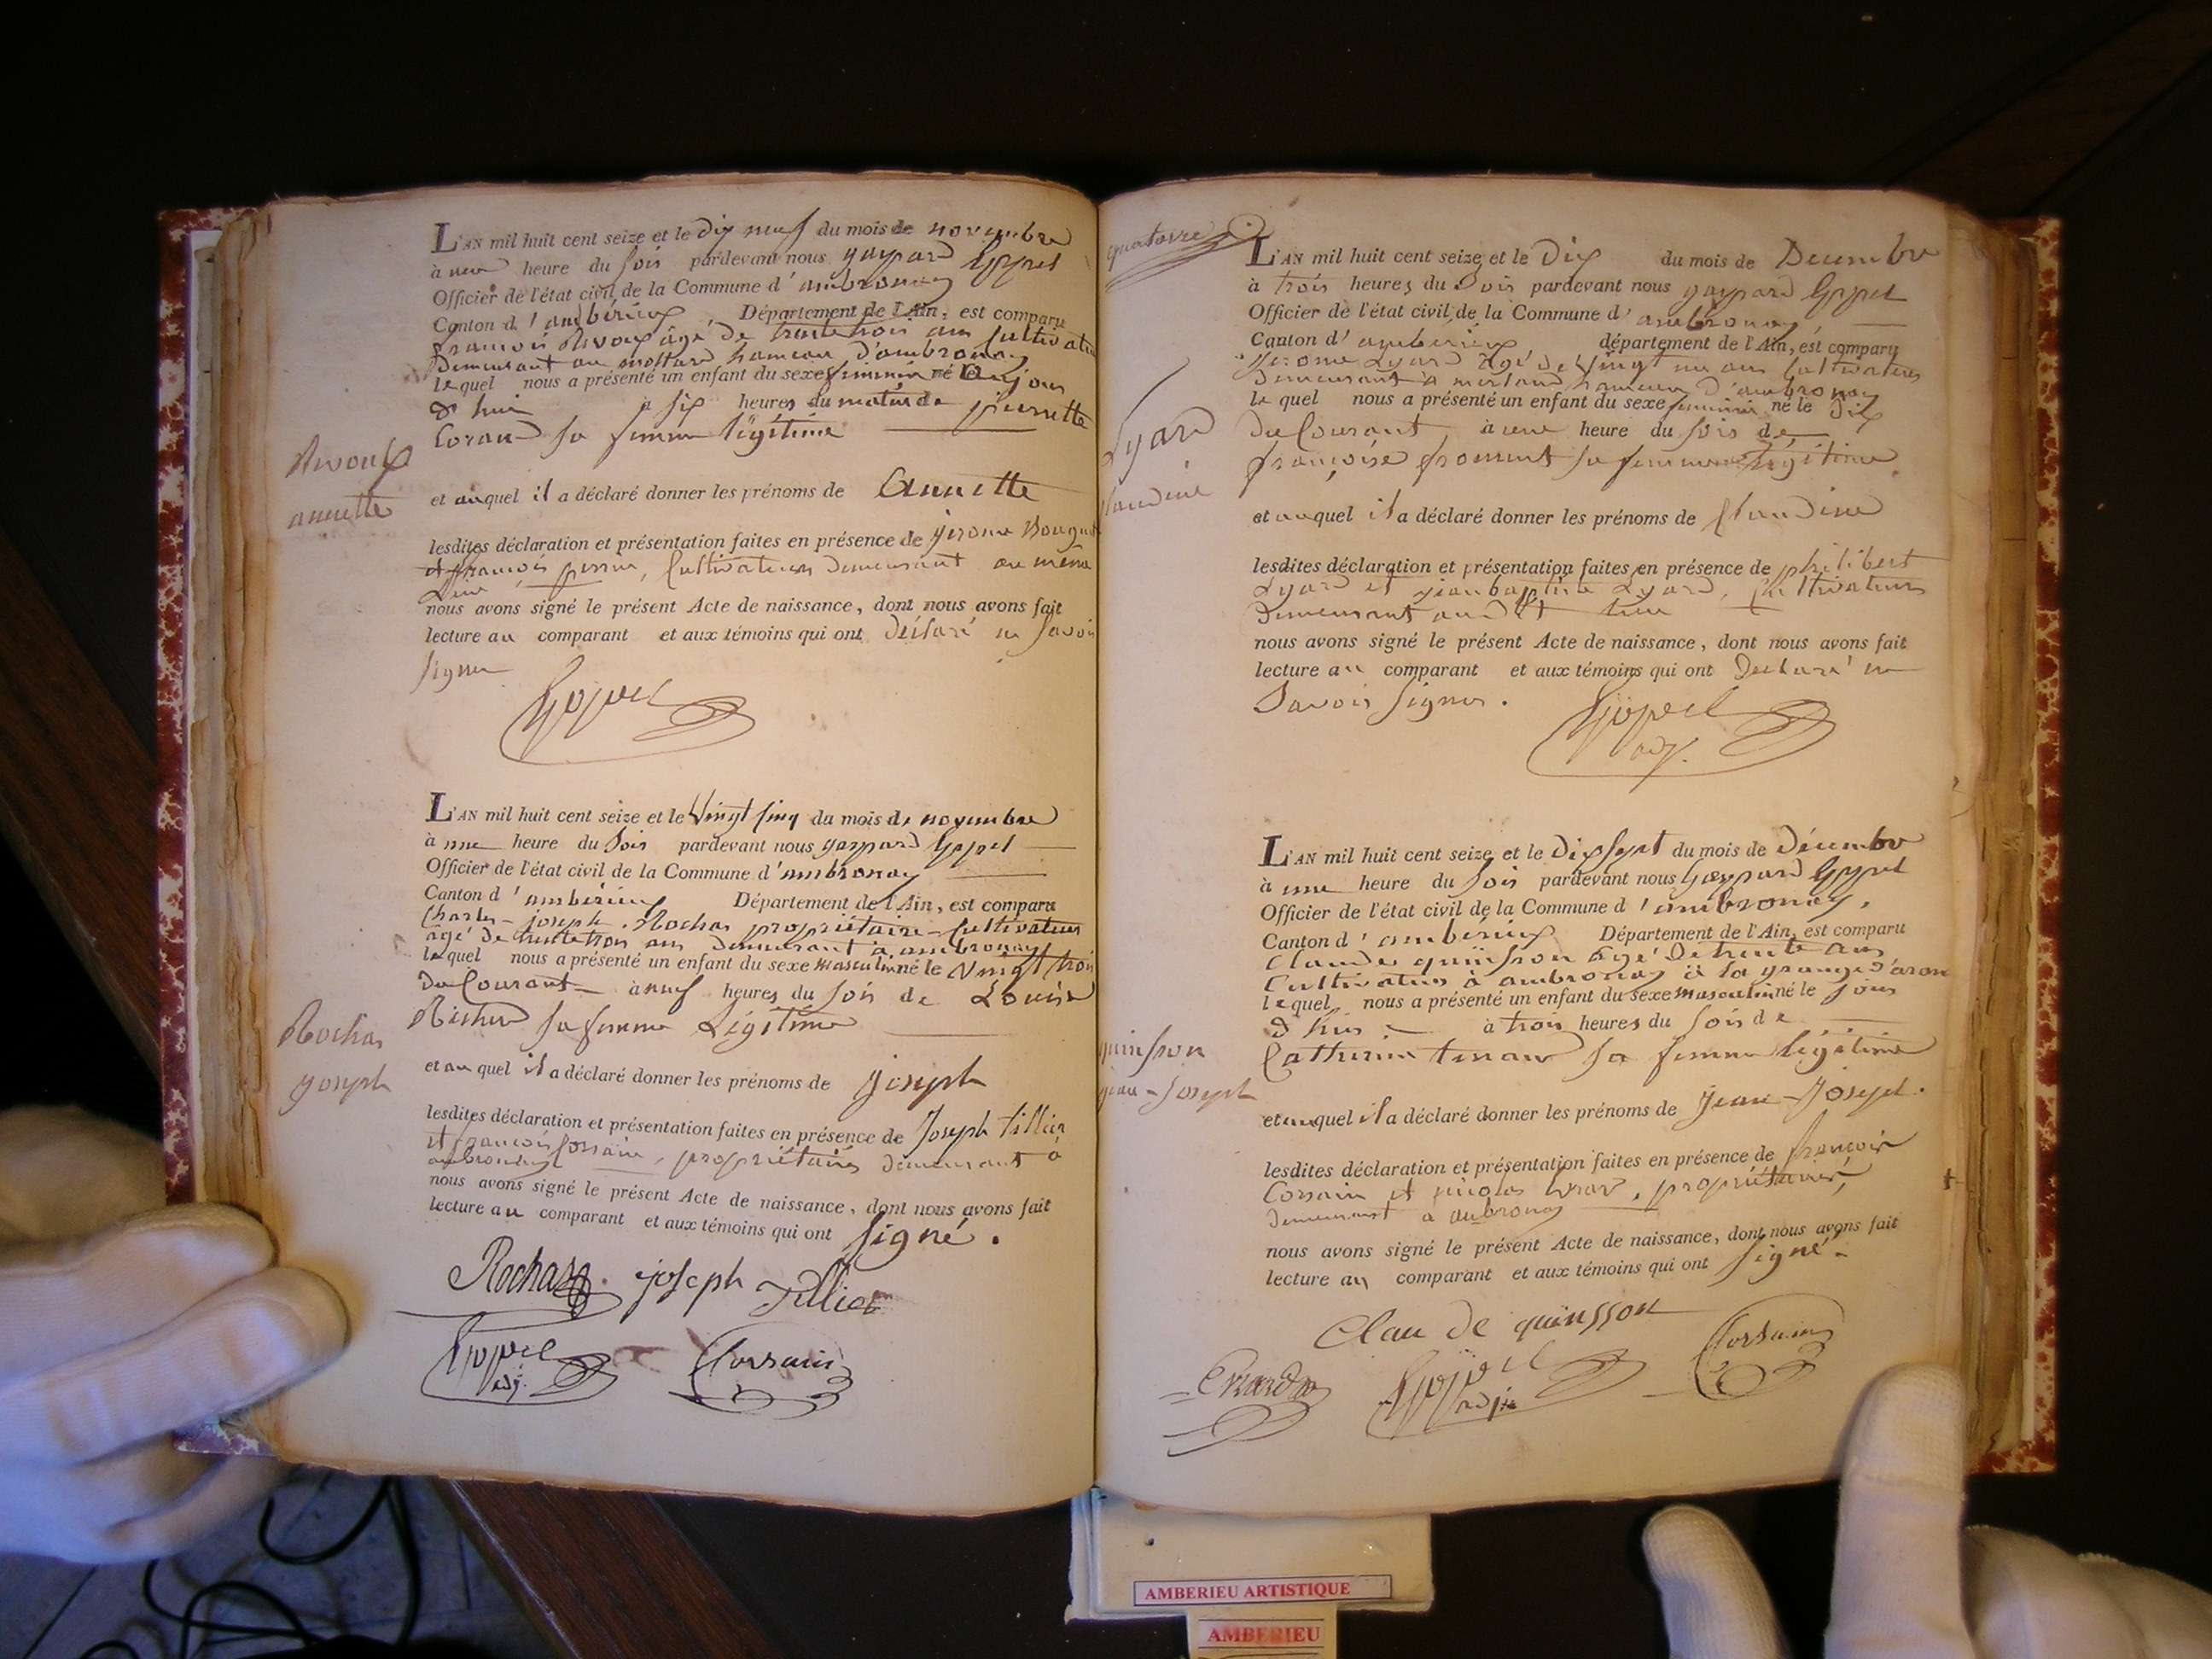 L'AN mil huit cent seize et le Dix neuf du mois de novembre
à une heure du soir pardevant nous gaspard
Officier de l'état civil de la Commune d'ambronay
Canton d'ambérieux Département de l'Ain, est comparu
francois Rivoux âgé de trente trois ans Cultivateur
Demeurant au mollard hameau d'ambronay
lequel nous a présenté un enfant du sexe feminin né le jour
d'hui à six heures du matin de pierrette
sa femme légitime
Rivoux
annette
et auquel il a déclaré donner les prénoms de Annette
lesdites déclaration et présentation faites en présence de jerome
et francois perrin, Cultivateurs demeurant au même
Lieu
nous avons signé le présent Acte de naissance, dont nous avons fait
lecture au comparant et aux témoins qui ont déclaré ne savoir
signer
L'AN mil huit cent seize et le Vingt cinq du mois de novembre
à une heure du soir pardevant nous gaspard
Officier de l'état civil de la Commune d'ambronay
Canton d'ambérieux Département de l'Ain, est comparu
Charles-joseph Rochas propriétaire-Cultivateur
âgé de trente trois ans demeurant à ambronay
lequel nous a présenté un enfant du sexe masculin né le Vingt trois
du Courant à neuf heures du soir de Louise
sa femme Légitime
Rochas
joseph
et auquel il a déclaré donner les prénoms de joseph
lesdites déclaration et présentation faites en présence de Joseph tillier
et francois Corsain, propriétaires demeurant à
ambronay
nous avons signé le présent Acte de naissance, dont nous avons fait
lecture au comparant et aux témoins qui ont signé.
Rochas joseph Tillier
adj. Corsain
quatorze
L'AN mil huit cent seize et le Dix du mois de Decembre
à trois heures du Soir pardevant nous gaspard
Officier de l'état civil de la Commune d'ambronay
Canton d'ambérieux département de l'Ain, est comparu
jerome Lyard âgé de Vingt un ans Cultivateur
demeurant à merland hameau d'ambronay
lequel nous a présenté un enfant du sexe feminin né le dix
du Courant à une heure du soir de
françoise froment sa femme légitime
Lyard
Claudine
et auquel il a déclaré donner les prénoms de Claudine
lesdites déclaration et présentation faites en présence de philibert
Lyard et jean baptiste Lyard, Cultivateurs
Demeurant audit lieu
nous avons signé le présent Acte de naissance, dont nous avons fait
lecture au comparant et aux témoins qui ont Declaré ne
Savoir signer.
adj.
L'AN mil huit cent seize et le Dix sept du mois de Décembre
à une heure du soir pardevant nous Gaspard
Officier de l'état civil de la Commune d'ambronay,
Canton d'ambérieux Département de l'Ain, est comparu
Claude quinsson âgé de trente ans
Cultivateur à ambronay à la grange d'aron
lequel nous a présenté un enfant du sexe masculin né le jour
d'hui à trois heures du soir de
Catherine sa femme légitime
quinsson
jean-Joseph
et auquel il a déclaré donner les prénoms de Jean-Joseph.
lesdites déclaration et présentation faites en présence de francois
Corsain et nicolas, propriétaires,
demeurant à ambronay
nous avons signé le présent Acte de naissance, dont nous avons fait
lecture au comparant et aux témoins qui ont signé.
Clau de quinsson
adj. Corsain
AMBERIEU ARTISTIQUE
AMBERIEU